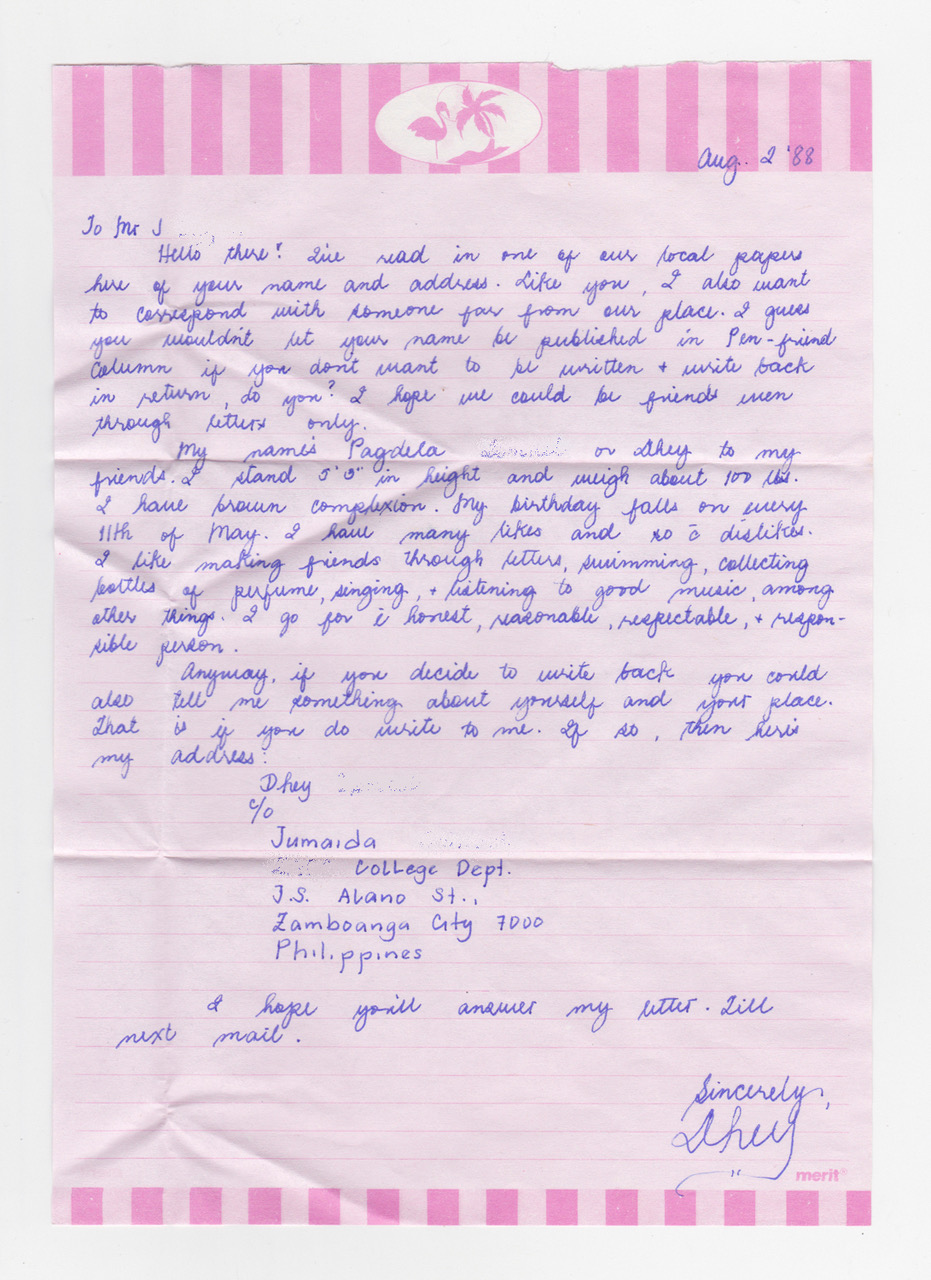 Aug. 2 '88
To Mr J
Hello there! I've read in one of our local papers
here of your name and address. Like you, I also want
to correspond with someone far from our place. I guess
you wouldn't let your name be published in Pen-friend
Column if you don't want to be written + write back
in return, do you? I hope we could be friends even
through letters only.
My name's Pagdela or Dhey to my
friends. I stand 5'3" in height and weigh about 100 lbs.
I have brown complexion. My birthday falls on every
11th of May. I have many likes and so c̄ dislikes.
I like making friends through letters, swimming, collecting
bottles of perfume, singing, + listening to good music, among
other things. I go for c̄ honest, reasonable, respectable, + respon-
sible person.
Anyway, if you decide to write back you could
also tell me something about yourself and your place.
That is if you do write to me. If so, then here's
my address:
Dhey
c/o
Jumaida
College Dept.
J.S. Alano St.,
Zamboanga City 7000
Philippines
I hope you'll answer my letter. Till
next mail.
Sincerely,
Dhey
merit®